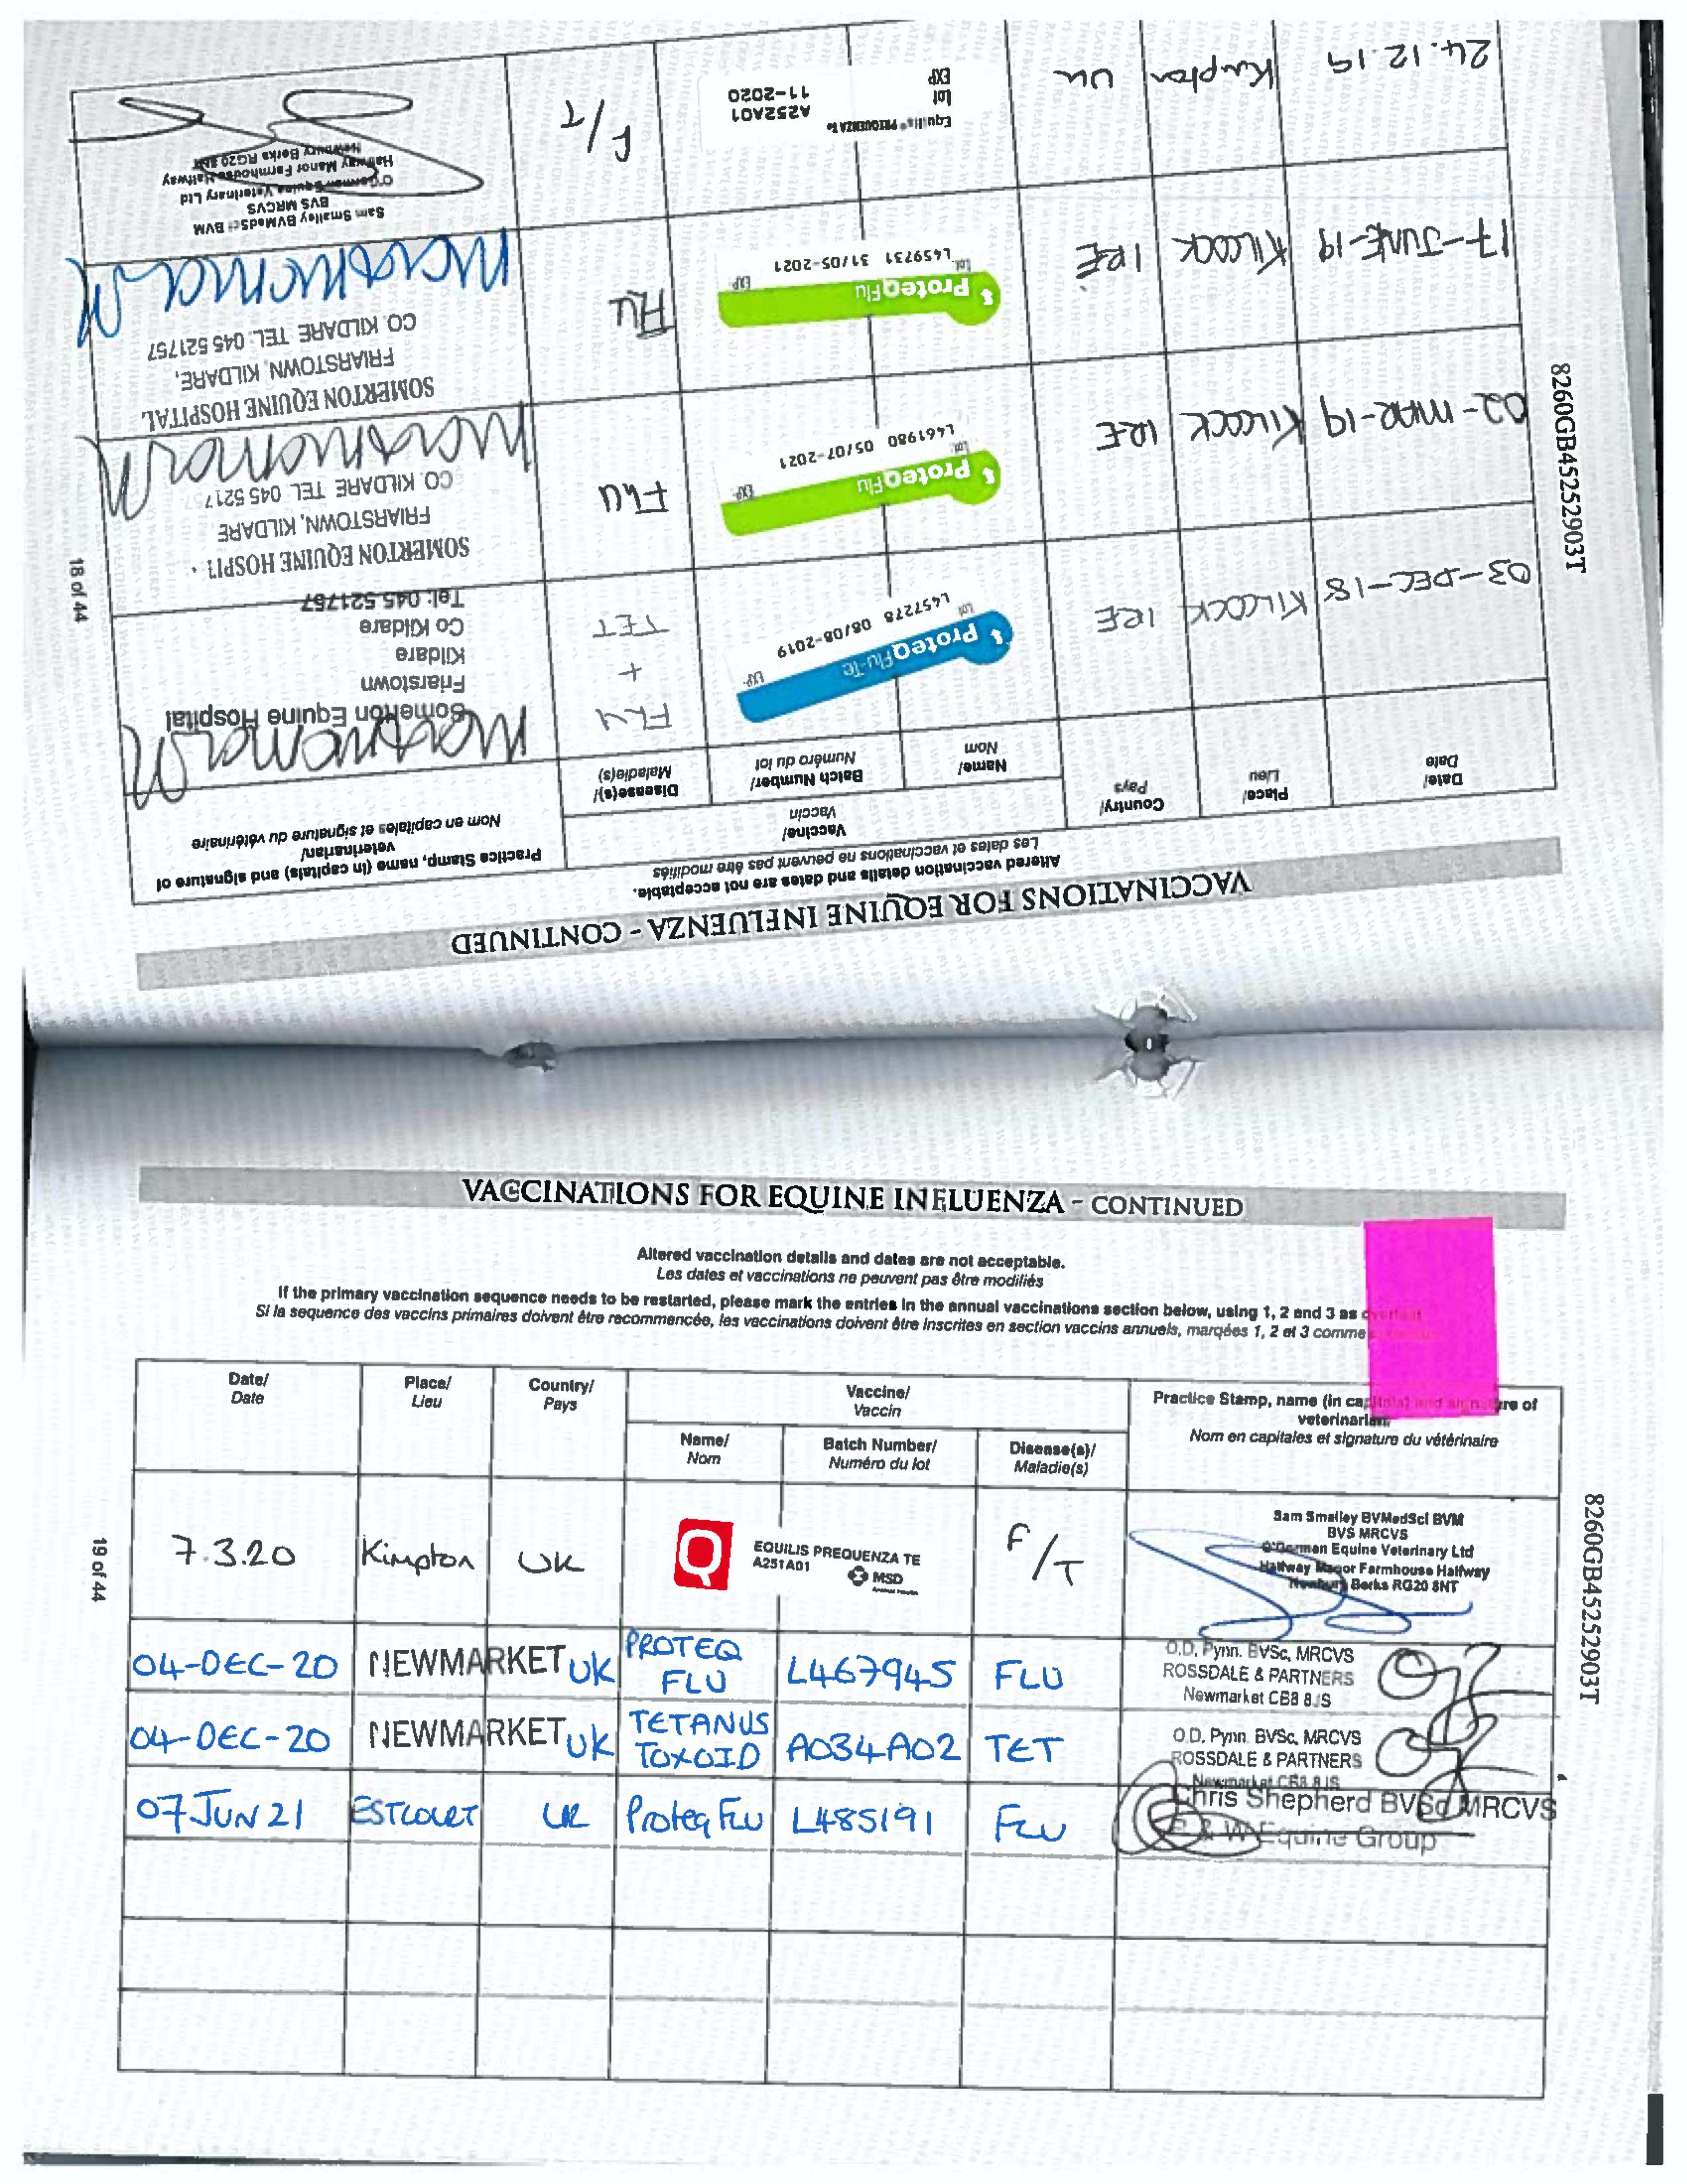 VACCINATIONS FOR EQUINE INFLUENZA - CONTINUED
Altered vaccination details and dates are not acceptable.
Les dates et vaccinations ne peuvent pas être modifiés
Date/
Date
Place/
Lieu
Country/
Pays
Vaccine/
Vaccin
Name/
Nom
Batch Number/
Numéro du lot
Disease(s)/
Maladie(s)
Practice Stamp, name (in capitals) and signature of
veterinarian/
Nom en capitales et signature du vétérinaire
03-DEC-18 KILCOCK IRE
ProteqFlu-Te
Lot EXP
L457278 08/08-2019
FLU
+
TET
Somerton Equine Hospital
Friarstown
Kildare
Co Kildare
Tel: 045 521757
02-MAR-19 KILCOCK IRE
ProteqFlu
Lot EXP
L461980 05/07-2021
FLU
SOMERTON EQUINE HOSPIT
FRIARSTOWN, KILDARE
CO KILDARE TEL 045 5217
17-JUNE-19 KILCOCK IRE
ProteqFlu
Lot EXP
L459731 31/05-2021
FLU
SOMERTON EQUINE HOSPITAL
FRIARSTOWN, KILDARE,
CO. KILDARE TEL: 045 521757
24.12.19 Kimpton UK
Equilis® PREQUENZA Te
Lot A252A01
EXP 11-2020
F/T
Sam Smalley BVMedSci BVM
BVS MRCVS
O'Gorman Equine Veterinary Ltd
Halfway Manor Farmhouse Halfway
Newbury Berks RG20 8NT
8260GB45252903T
18 of 44
VACCINATIONS FOR EQUINE INFLUENZA - CONTINUED
Altered vaccination details and dates are not acceptable.
Les dates et vaccinations ne peuvent pas être modifiés
If the primary vaccination sequence needs to be restarted, please mark the entries in the annual vaccinations section below, using 1, 2 and 3 as
Si la sequence des vaccins primaires doivent être recommencée, les vaccinations doivent être inscrites en section vaccins annuels, marqées 1, 2 et 3 comme
Date/
Date
Place/
Lieu
Country/
Pays
Vaccine/
Vaccin
Name/
Nom
Batch Number/
Numéro du lot
Disease(s)/
Maladie(s)
Practice Stamp, name (in capitals) and signature of
veterinarian/
Nom en capitales et signature du vétérinaire
7.3.20 Kimpton UK
Q
EQUILIS PREQUENZA TE
A251A01
MSD
Animal Health
F/T
Sam Smalley BVMedSci BVM
BVS MRCVS
O'Gorman Equine Veterinary Ltd
Halfway Manor Farmhouse Halfway
Newbury Berks RG20 8NT
04-DEC-20 NEWMARKET UK PROTEQ FLU L467945 FLU
O.D. Pynn. BVSc, MRCVS
ROSSDALE & PARTNERS
Newmarket CB8 8JS
04-DEC-20 NEWMARKET UK TETANUS TOXOID A034A02 TET
O.D. Pynn. BVSc, MRCVS
ROSSDALE & PARTNERS
Newmarket CB8 8JS
07 JUN 21 ESTCOURT UK Proteq FLU L485191 FLU
Chris Shepherd BVSc MRCVS
& W Equine Group
8260GB45252903T
19 of 44